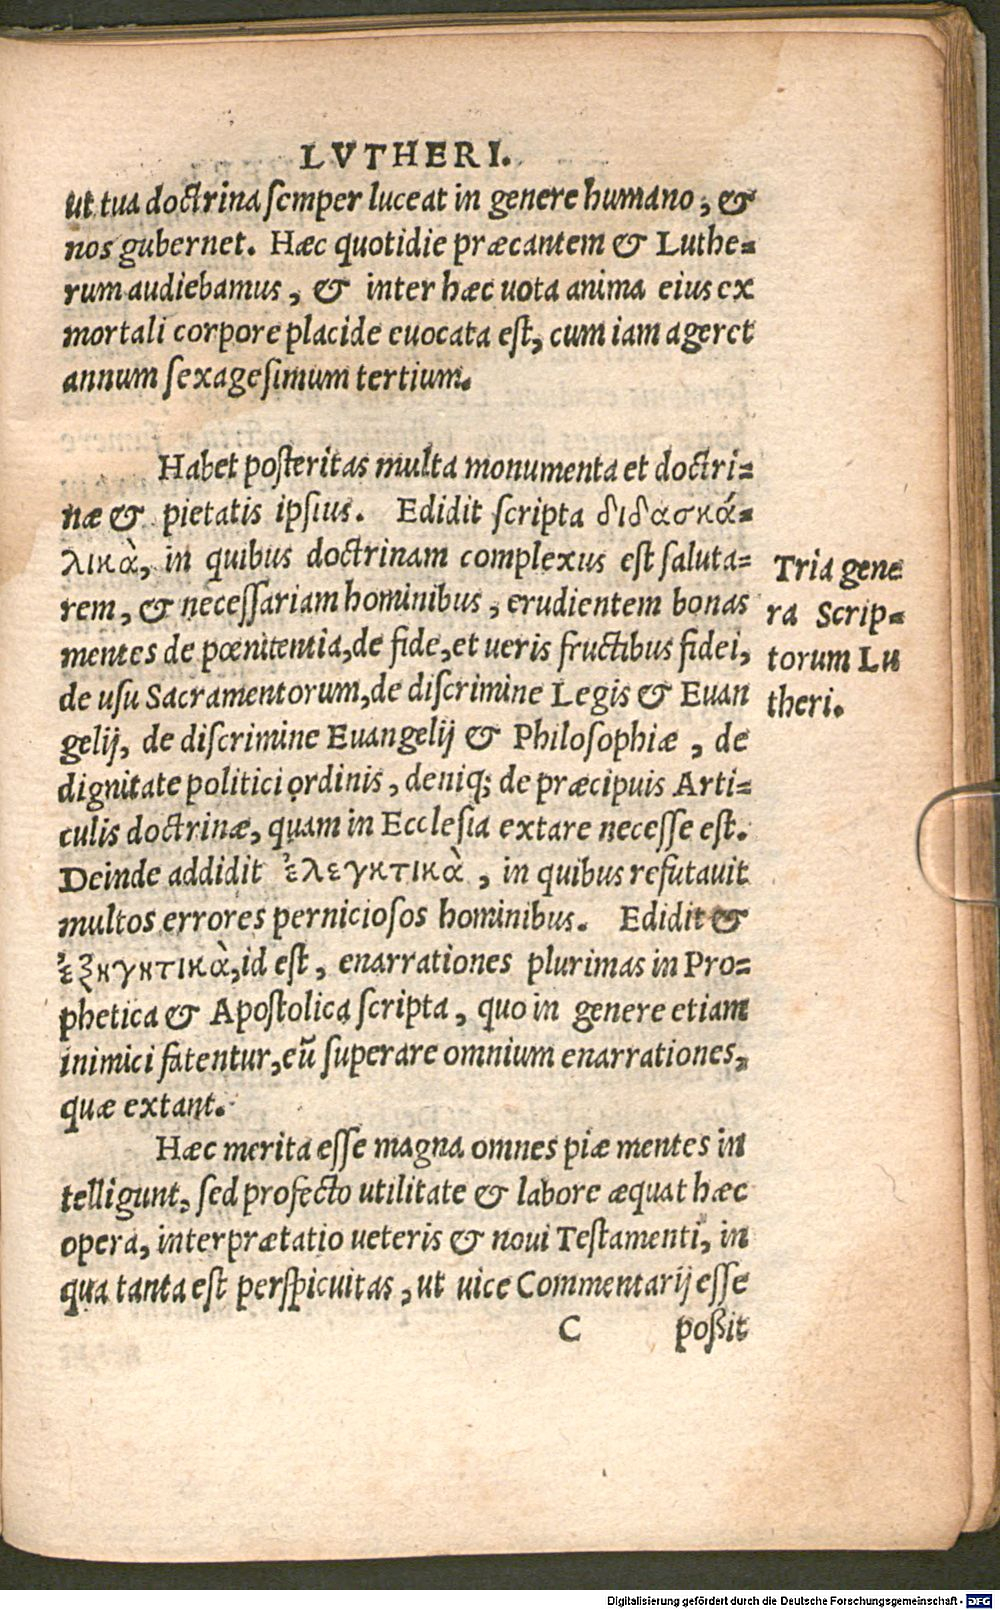 LVTHERI.
ut tua doctrina semper luceat in genere humano, &
nos gubernet. Hæc quotidie præcantem & Luthe=
rum audiebamus, & inter hæc uota anima eius ex
mortali corpore placide euocata est, cum iam ageret
annum sexagesimum tertium.
Habet posteritas multa monumenta et doctri=
næ & pietatis ipsius. Edidit scripta διδασκά=
λικὰ, in quibus doctrinam complexus est saluta=
rem, & necessariam hominibus, erudientem bonas
mentes de pœnitentia, de fide, et ueris fructibus fidei,
de usu Sacramentorum, de discrimine Legis & Euan
gelij, de discrimine Euangelij & Philosophiæ, de
dignitate politici ordinis, deniq; de præcipuis Arti=
culis doctrinæ, quam in Ecclesia extare necesse est.
Deinde addidit ἐλεγκτικὰ, in quibus refutauit
multos errores perniciosos hominibus. Edidit &
ἐξηγητικὰ, id est, enarrationes plurimas in Pro=
phetica & Apostolica scripta, quo in genere etiam
inimici fatentur, eũ superare omnium enarrationes,
quæ extant.
Hæc merita esse magna omnes piæ mentes in
telligunt, sed profecto utilitate & labore æquat hæc
opera, interprætatio ueteris & noui Testamenti, in
qua tanta est perspicuitas, ut uice Commentarij esse
C poßit
Tria gene
ra Scrip=
torum Lu
theri.
Digitalisierung gefördert durch die Deutsche Forschungsgemeinschaft - DFG